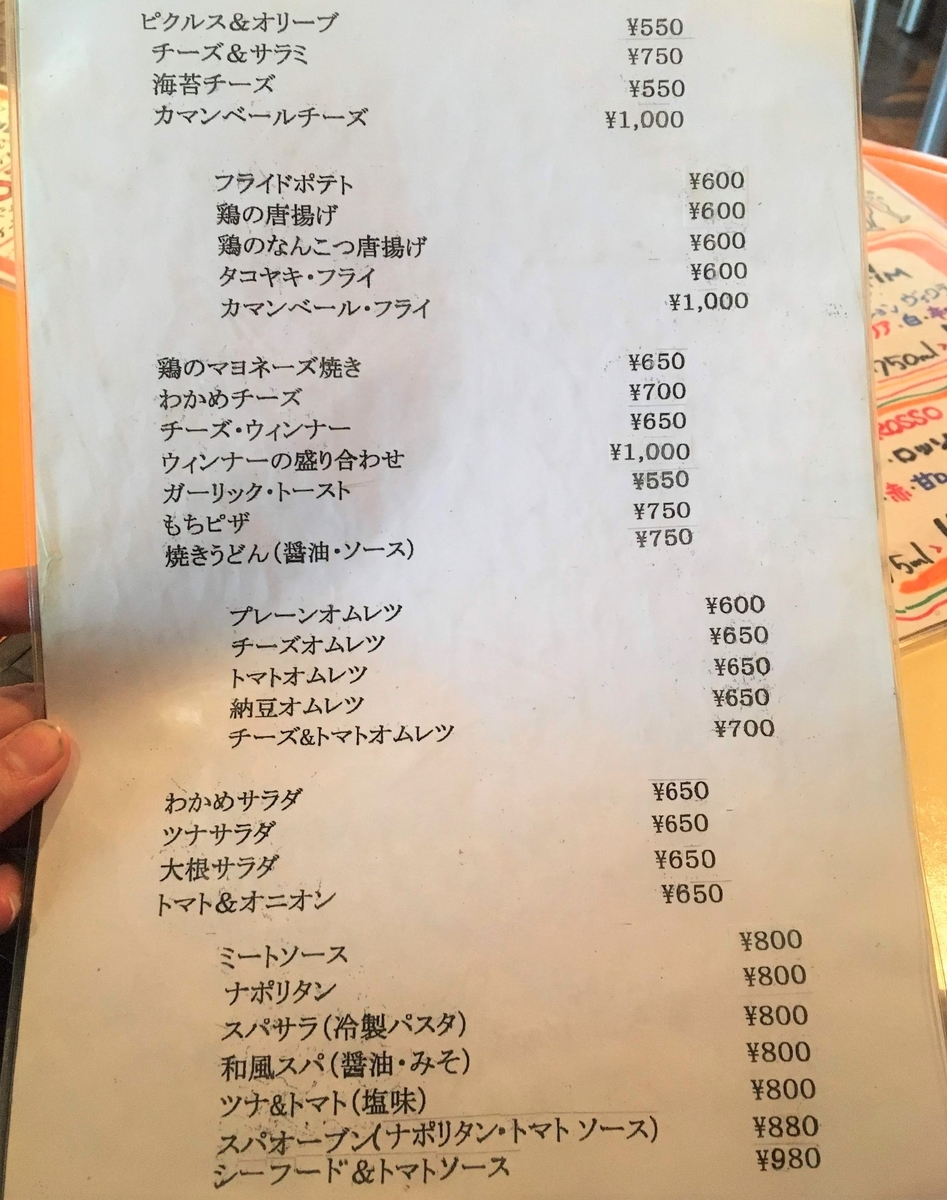 ピクルス&オリーブ ¥550
チーズ&サラミ ¥750
海苔チーズ ¥550
カマンベールチーズ ¥1,000
フライドポテト ¥600
鶏の唐揚げ ¥600
鶏のなんこつ唐揚げ ¥600
タコヤキ・フライ ¥600
カマンベール・フライ ¥1,000
鶏のマヨネーズ焼き ¥650
わかめチーズ ¥700
チーズ・ウィンナー ¥650
ウィンナーの盛り合わせ ¥1,000
ガーリック・トースト ¥550
もちピザ ¥750
焼きうどん(醤油・ソース) ¥750
プレーンオムレツ ¥600
チーズオムレツ ¥650
トマトオムレツ ¥650
納豆オムレツ ¥650
チーズ&トマトオムレツ ¥700
わかめサラダ ¥650
ツナサラダ ¥650
大根サラダ ¥650
トマト&オニオン ¥650
ミートソース ¥800
ナポリタン ¥800
スパサラ(冷製パスタ) ¥800
和風スパ(醤油・みそ) ¥800
ツナ&トマト(塩味) ¥800
スパオーブン(ナポリタン・トマト ソース) ¥880
シーフード&トマトソース ¥980
750ml
ROSSO